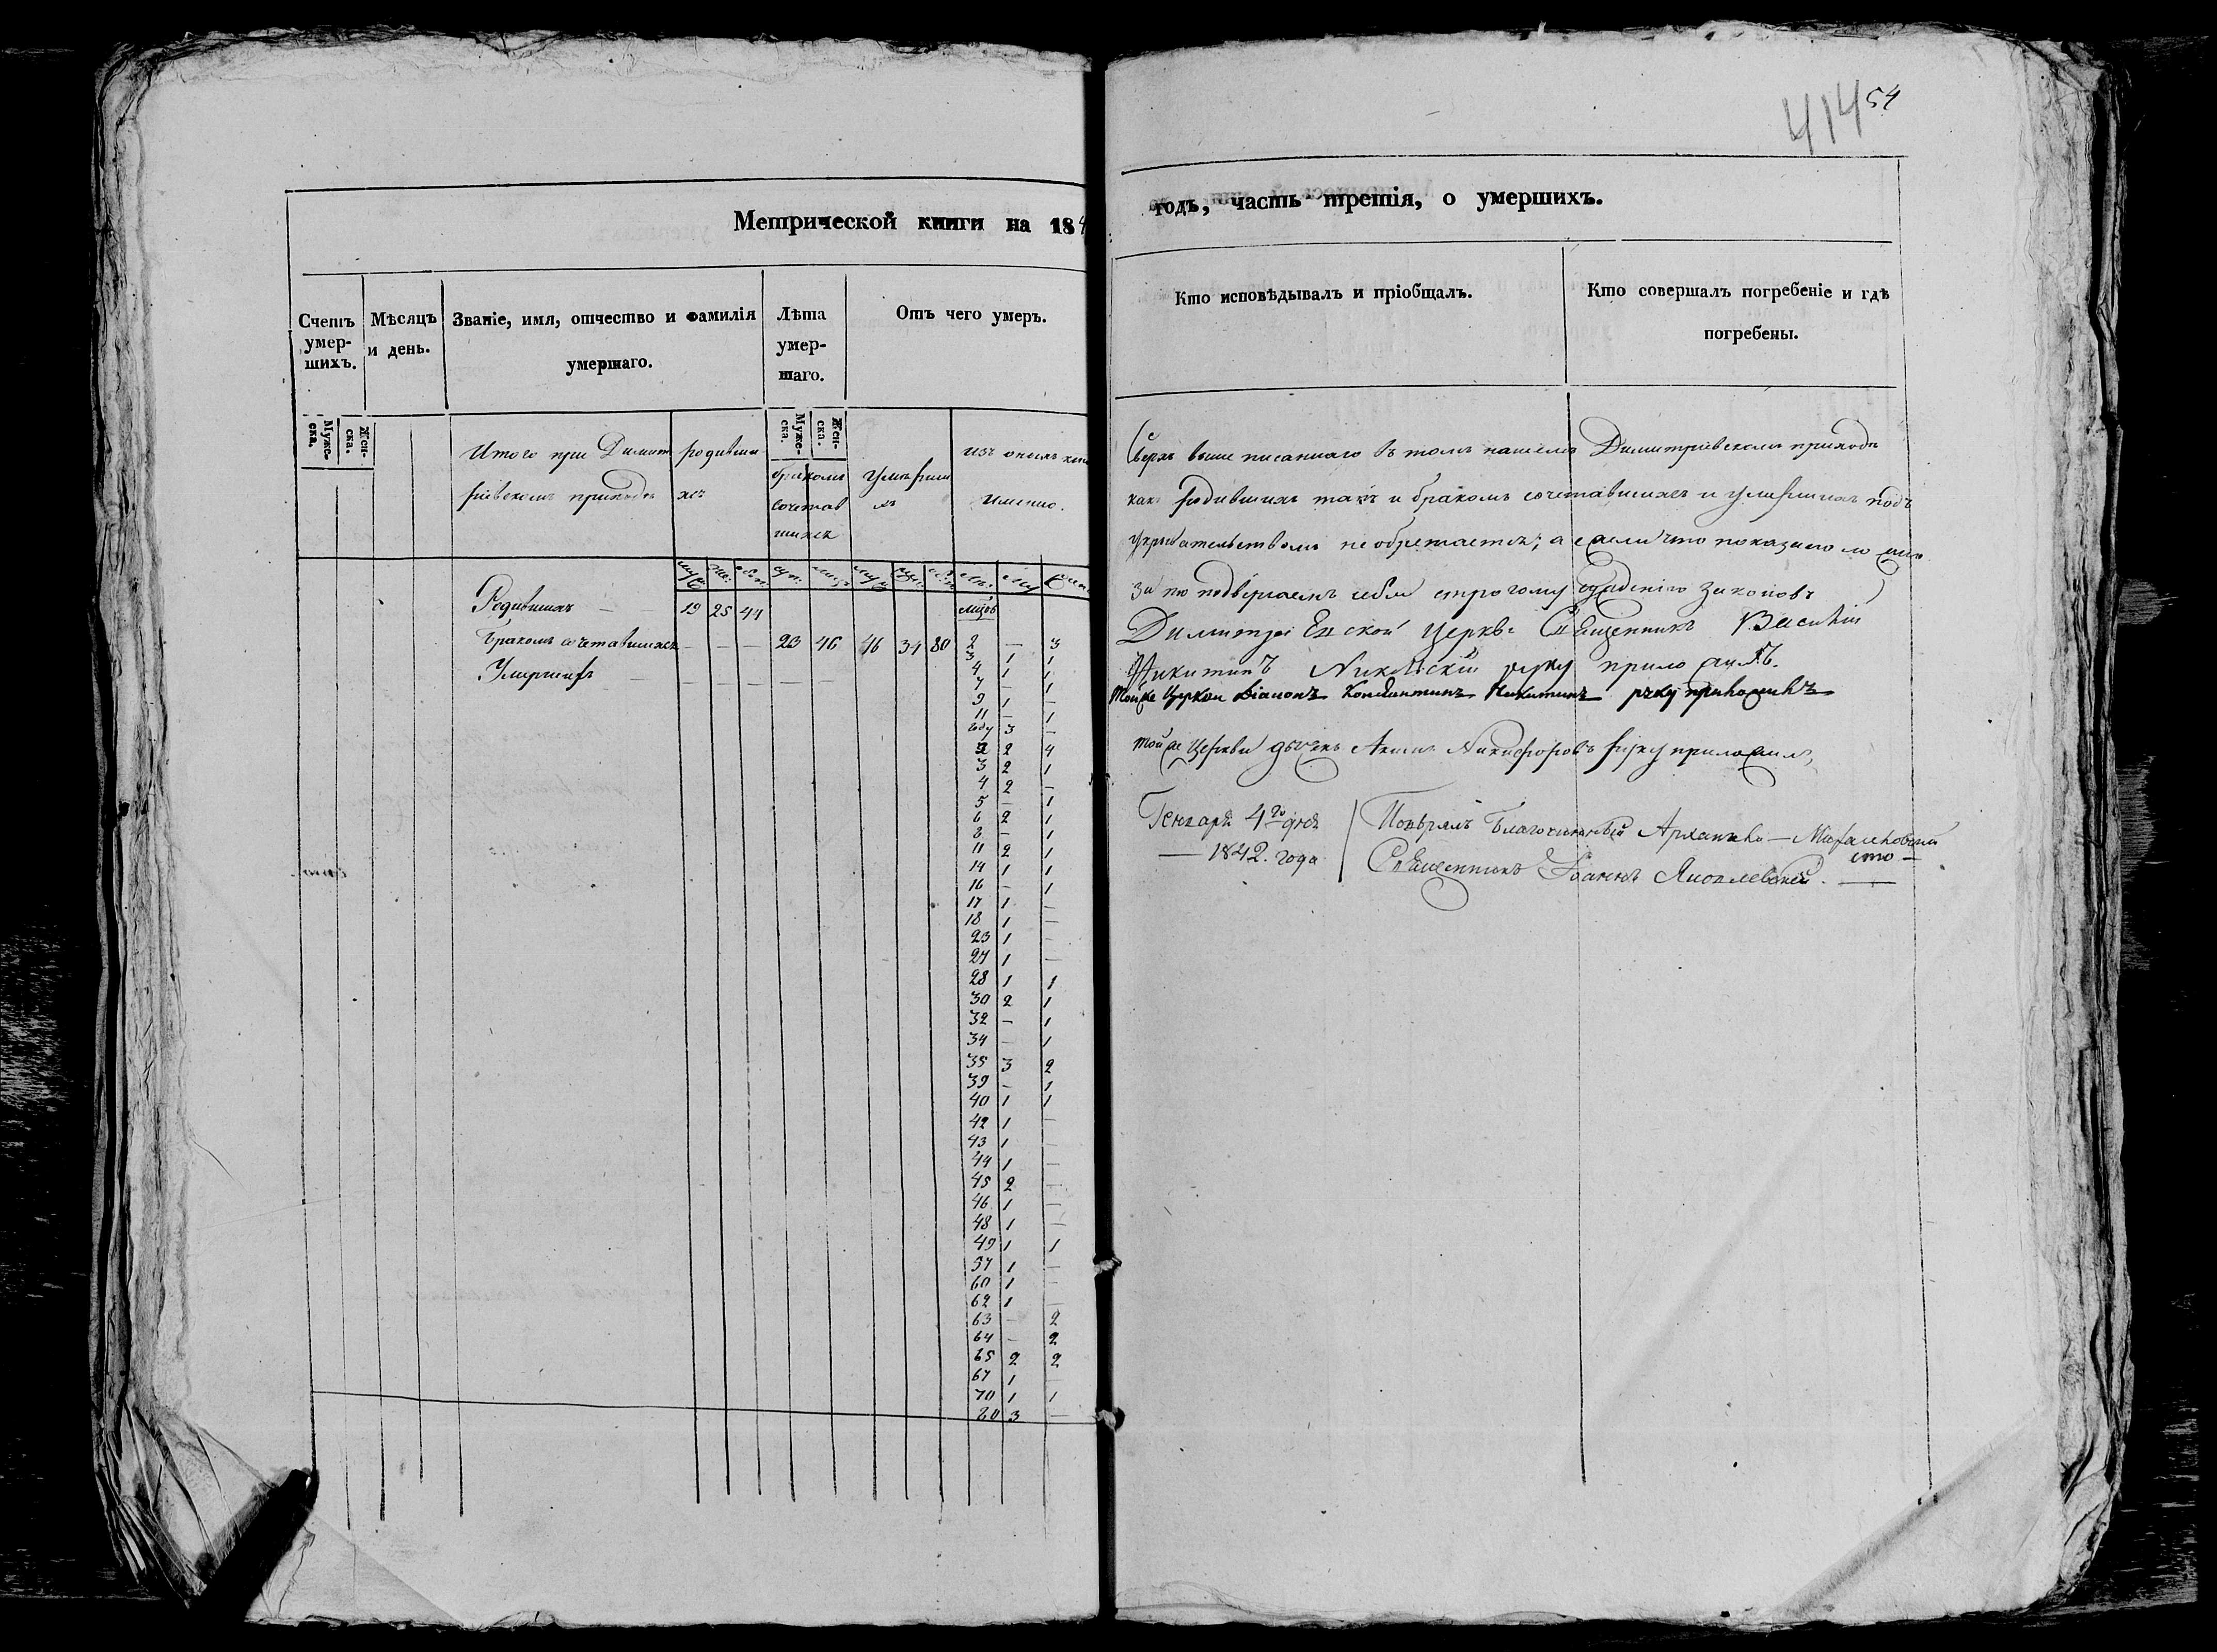 414 54
Метрической книги на 184
годъ, часть третія, о умершихъ.
Счетъ умер-шихъ.
Мѣсяцъ и день.
Званіе, имя, отчество и фамилія умершаго.
Лѣта умер-шаго.
Отъ чего умеръ.
Кто исповѣдывалъ и пріобщалъ.
Кто совершалъ погребеніе и гдѣ погребены.
Муже-ска.
Жен-ска.
Муже-ска.
Жен-ска.
Итого при Димит
ріевскомъ приходѣ
родивши
хся
бракомъ
сочетав
шихся
умерши
хъ
изъ оныхъ
именно.
Родившихся — 19 25 44
мцовъ
Бракомъ сочетавшихся — — — 23 46 46 34 80 2 — 3
Умершихъ — — — — — —
3 1 1
4 1 1
7 — 1
9 1 —
11 — 1
году 3 —
2 2 4
3 2 1
4 2 —
5 — 1
6 2 1
8 — 1
11 2 1
14 1 1
16 — 1
17 1 —
18 1 —
23 1 —
27 1 —
28 1 1
30 2 1
32 — 1
34 — 1
35 3 2
39 — 1
40 1 1
42 1 —
43 1 —
44 1 —
45 2 —
46 1 —
48 1 —
49 1 1
57 1 —
60 1 —
62 1 —
63 — 2
64 — 2
65 2 2
67 1
70 1 1
80 3 —
Сверхъ выше писаннаго въ томъ нашемъ Димитріевскомъ приходѣ
какъ родившихъ такъ и бракомъ сочетавшихся и умершихъ подъ
укрывательствомъ не обретается; а если что показано ложно
за то подвергаемъ себя строгому сужденію законовъ
Димитріевской церкви Священникъ Василій
Никитинъ Никольскій руку приложилъ.
Той же Церкви Діаконъ Константинъ Никитинъ руку приложилъ
той же Церкви дьячекъ Акимъ Никифоровъ руку приложилъ
Генваря 4го дня
— 1842. года
Повѣрялъ Благочинный Архангело —
Священникъ Іоаннъ Яковлевскій. —